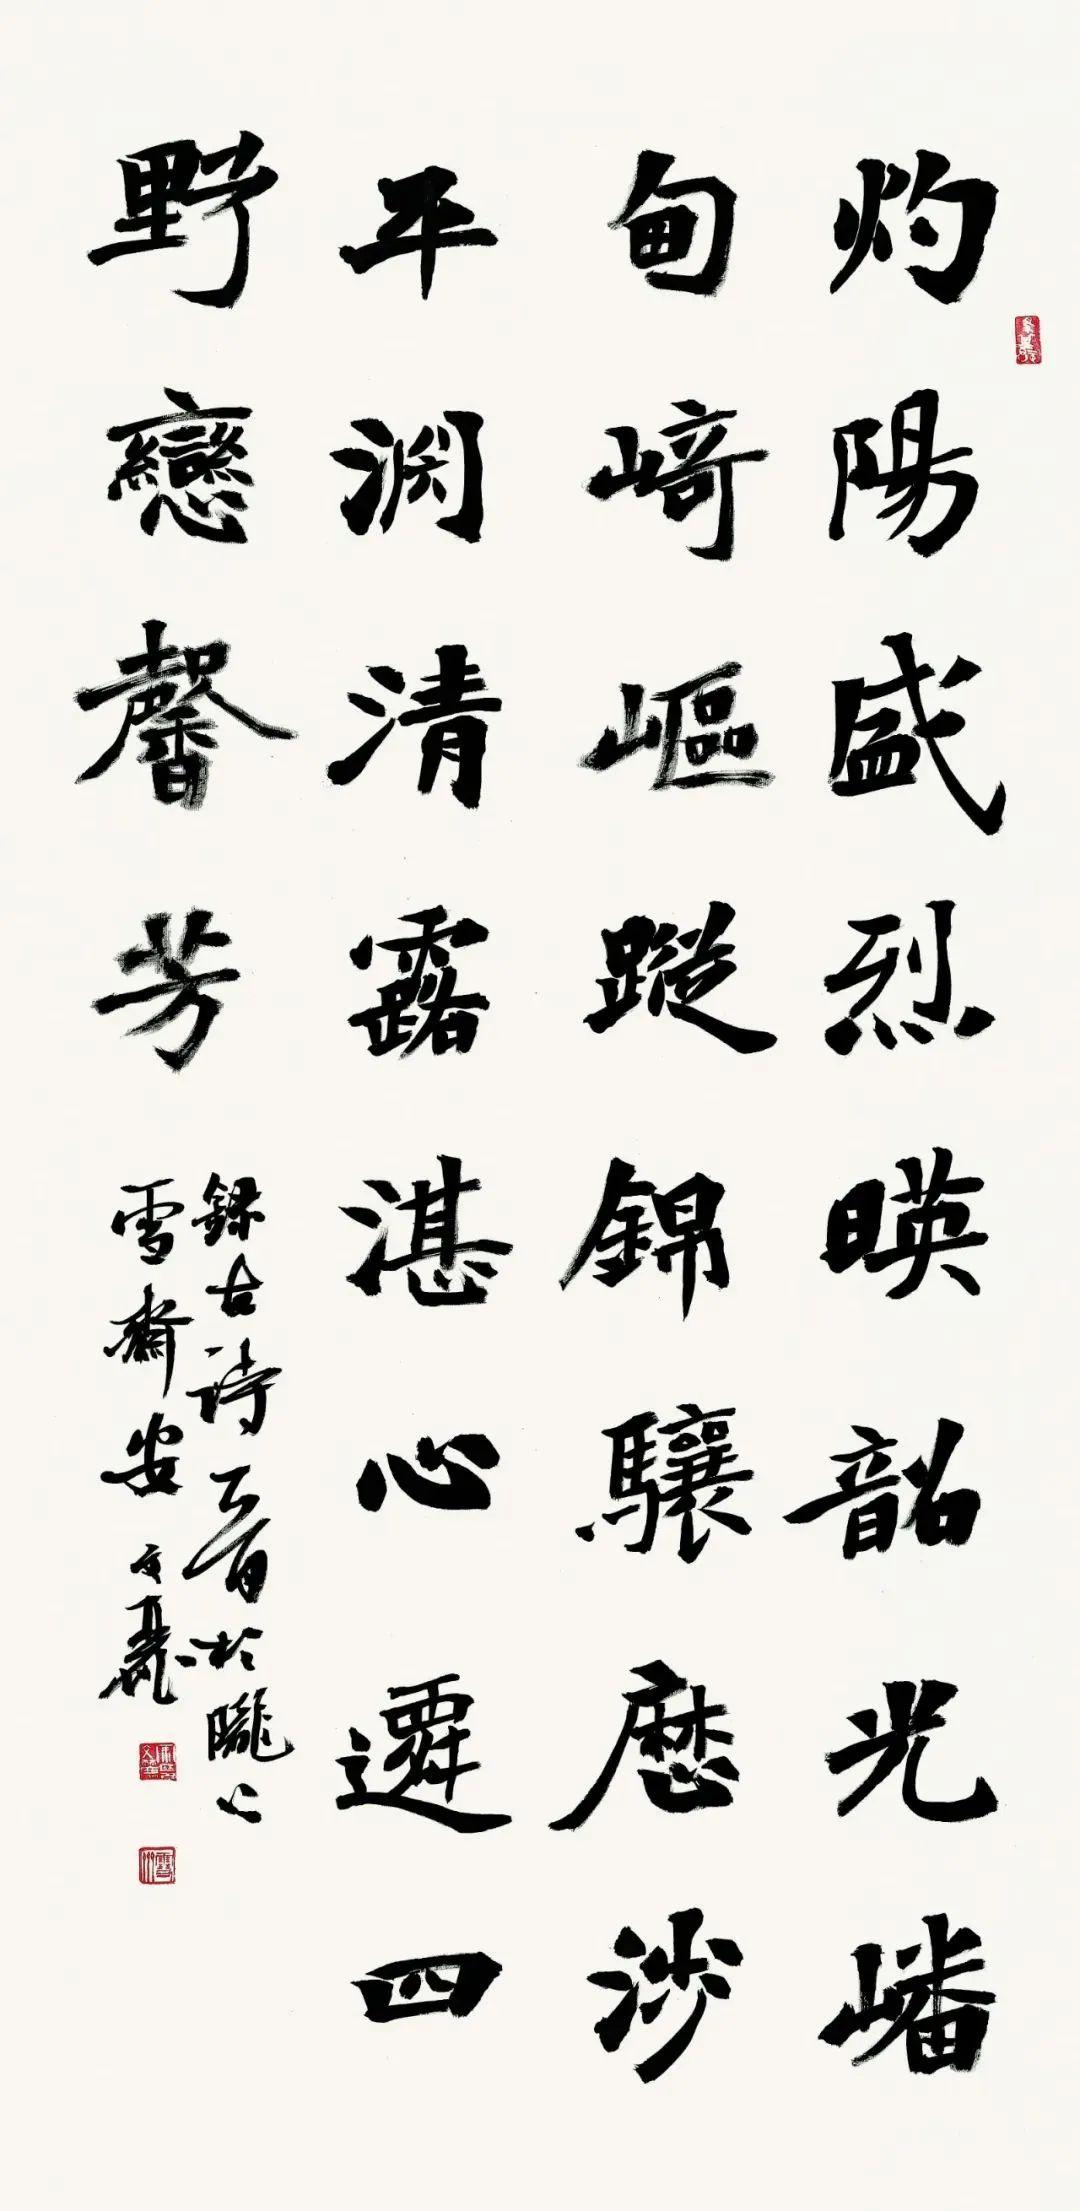 灼陽盛烈暎韶光嶓
甸崎嶇蹤錦驤歷涉
平渊清露湛心遷四
野戀馨芳
錄古詩一首於隴上
雪齋安文麗